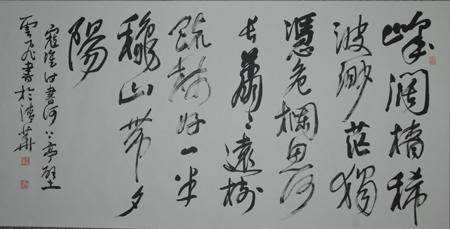 岸闊檣稀
波渺茫獨
憑危欄思何
長蕭〻遠樹
疏林外一半
秋山帶夕
陽
寇準詩書河上亭壁
書於清華